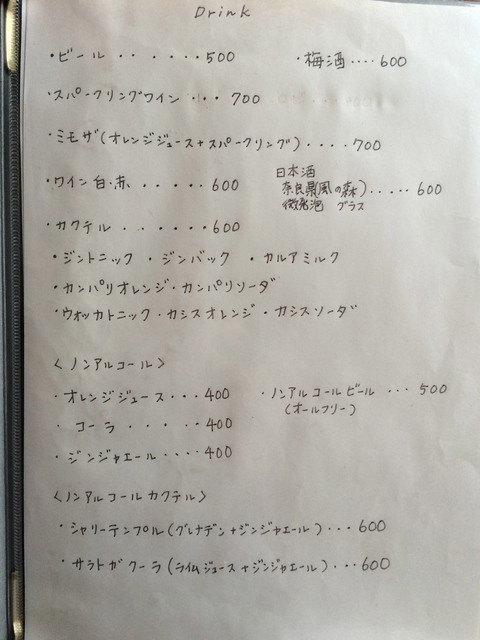 Drink
・ビール・・・・・・500
・梅酒・・・・600
・スパークリングワイン・・・700
・ミモザ(オレンジジュース+スパークリング)・・・・700
・ワイン白・赤・・・・・600
日本酒
奈良県(風の森)・・・・・600
微発泡 グラス
・カクテル・・・・・・600
・ジントニック・ジンバック・カルアミルク
・カンパリオレンジ・カンパリソーダ
・ウォッカトニック・カシスオレンジ・カシスソーダ
<ノンアルコール>
・オレンジジュース・・・400
・ノンアルコールビール・・・500
(オールフリー)
・コーラ・・・・・400
・ジンジャエール・・・・400
<ノンアルコールカクテル>
・シャリーテンプル(グレナデン+ジンジャエール)・・・600
・サラトガクーラ(ライムジュース+ジンジャエール)・・・600